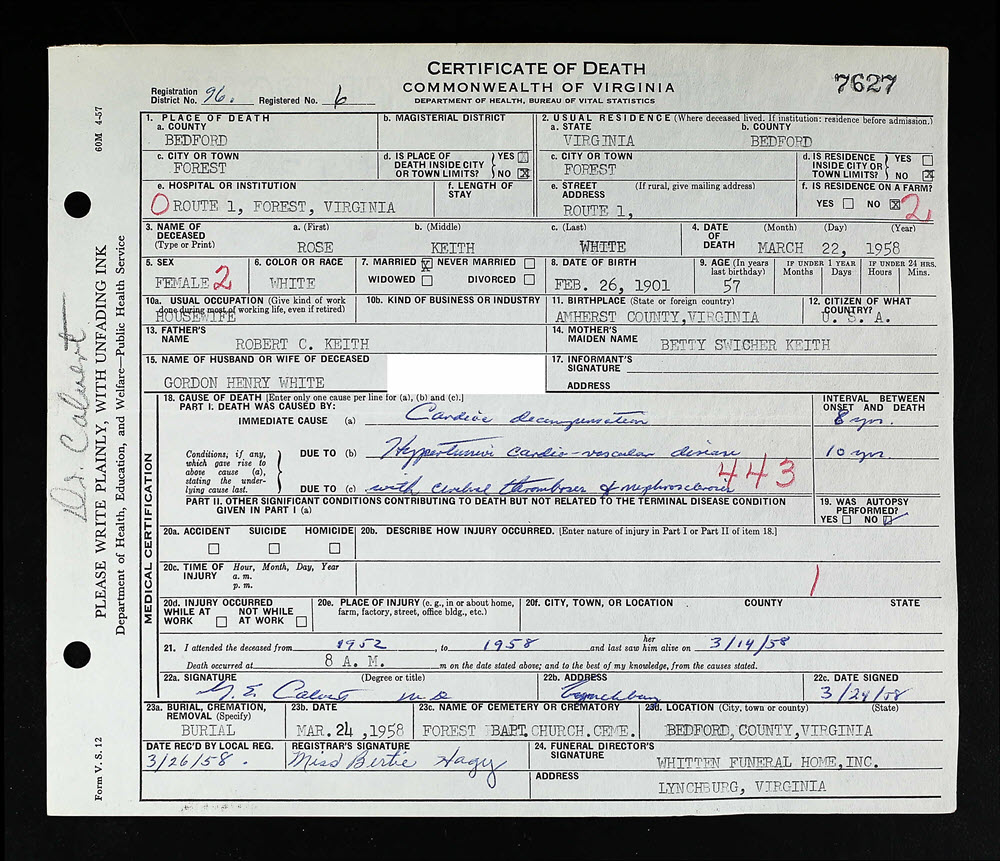 CERTIFICATE OF DEATH
COMMONWEALTH OF VIRGINIA
DEPARTMENT OF HEALTH, BUREAU OF VITAL STATISTICS
7627
Registration District No. 96. Registered No. 6
60M 4-57
1. PLACE OF DEATH
a. COUNTY
BEDFORD
b. MAGISTERIAL DISTRICT
2. USUAL RESIDENCE (Where deceased lived. If institution: residence before admission.)
a. STATE
VIRGINIA
b. COUNTY
BEDFORD
c. CITY OR TOWN
FOREST
d. IS PLACE OF DEATH INSIDE CITY OR TOWN LIMITS? YES NO X
c. CITY OR TOWN
FOREST
d. IS RESIDENCE INSIDE CITY OR TOWN LIMITS? YES NO X
e. HOSPITAL OR INSTITUTION
0 ROUTE 1, FOREST, VIRGINIA
f. LENGTH OF STAY
e. STREET ADDRESS (If rural, give mailing address)
ROUTE 1,
f. IS RESIDENCE ON A FARM?
YES NO X 2
3. NAME OF DECEASED (Type or Print)
a. (First) b. (Middle) c. (Last)
ROSE KEITH WHITE
4. DATE OF DEATH (Month) (Day) (Year)
MARCH 22, 1958
5. SEX
FEMALE 2
6. COLOR OR RACE
WHITE
7. MARRIED X NEVER MARRIED
WIDOWED DIVORCED
8. DATE OF BIRTH
FEB. 26, 1901
9. AGE (In years last birthday)
57
IF UNDER 1 YEAR
Months Days
IF UNDER 24 HRS.
Hours Mins.
10a. USUAL OCCUPATION (Give kind of work done during most of working life, even if retired)
HOUSEWIFE
10b. KIND OF BUSINESS OR INDUSTRY
11. BIRTHPLACE (State or foreign country)
AMHERST COUNTY,VIRGINIA
12. CITIZEN OF WHAT COUNTRY?
U. S. A.
13. FATHER'S NAME
ROBERT C. KEITH
14. MOTHER'S MAIDEN NAME
BETTY SWICHER KEITH
15. NAME OF HUSBAND OR WIFE OF DECEASED
GORDON HENRY WHITE
17. INFORMANT'S SIGNATURE
ADDRESS
MEDICAL CERTIFICATION
18. CAUSE OF DEATH [Enter only one cause per line for (a), (b) and (c).]
PART I. DEATH WAS CAUSED BY:
IMMEDIATE CAUSE (a) Cardiac decompensation
INTERVAL BETWEEN ONSET AND DEATH
8 yrs.
Conditions, if any, which gave rise to above cause (a), stating the underlying cause last.
DUE TO (b) Hypertensive cardio-vascular disease
10 yrs
443
DUE TO (c) with cerebral thromboses & nephrosclerosis
PART II. OTHER SIGNIFICANT CONDITIONS CONTRIBUTING TO DEATH BUT NOT RELATED TO THE TERMINAL DISEASE CONDITION GIVEN IN PART I (a)
19. WAS AUTOPSY PERFORMED?
YES NO
20a. ACCIDENT SUICIDE HOMICIDE
20b. DESCRIBE HOW INJURY OCCURRED. [Enter nature of injury in Part I or Part II of item 18.]
20c. TIME OF INJURY Hour, Month, Day, Year
a. m.
p. m.
1
20d. INJURY OCCURRED
WHILE AT WORK NOT WHILE AT WORK
20e. PLACE OF INJURY (e. g., in or about home, farm, factory, street, office bldg., etc.)
20f. CITY, TOWN, OR LOCATION COUNTY STATE
21. I attended the deceased from 1952, to 1958 and last saw her him alive on 3/14/58
Death occurred at 8 A. M. m on the date stated above; and to the best of my knowledge, from the causes stated.
22a. SIGNATURE (Degree or title)
G. E. Calvert M D
22b. ADDRESS
Lynchburg
22c. DATE SIGNED
3/24/58
23a. BURIAL, CREMATION, REMOVAL (Specify)
BURIAL
23b. DATE
MAR. 24, 1958
23c. NAME OF CEMETERY OR CREMATORY
FOREST BAPT. CHURCH. CEME.
23d. LOCATION (City, town or county) (State)
BEDFORD, COUNTY,VIRGINIA
DATE REC'D BY LOCAL REG.
3/26/58.
REGISTRAR'S SIGNATURE
Miss Bertie Hagy
24. FUNERAL DIRECTOR'S SIGNATURE
WHITTEN FUNERAL HOME,INC.
ADDRESS
LYNCHBURG, VIRGINIA
Dr. Calvert
PLEASE WRITE PLAINLY, WITH UNFADING INK
Department of Health, Education, and Welfare—Public Health Service
Form V. S. 12